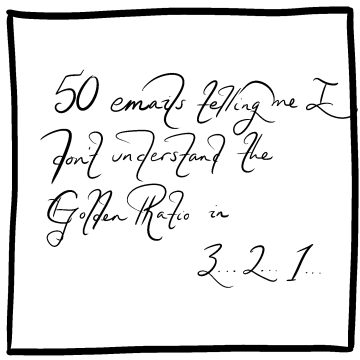 50 emails telling me I
don't understand the
Golden Ratio in
3... 2... 1...